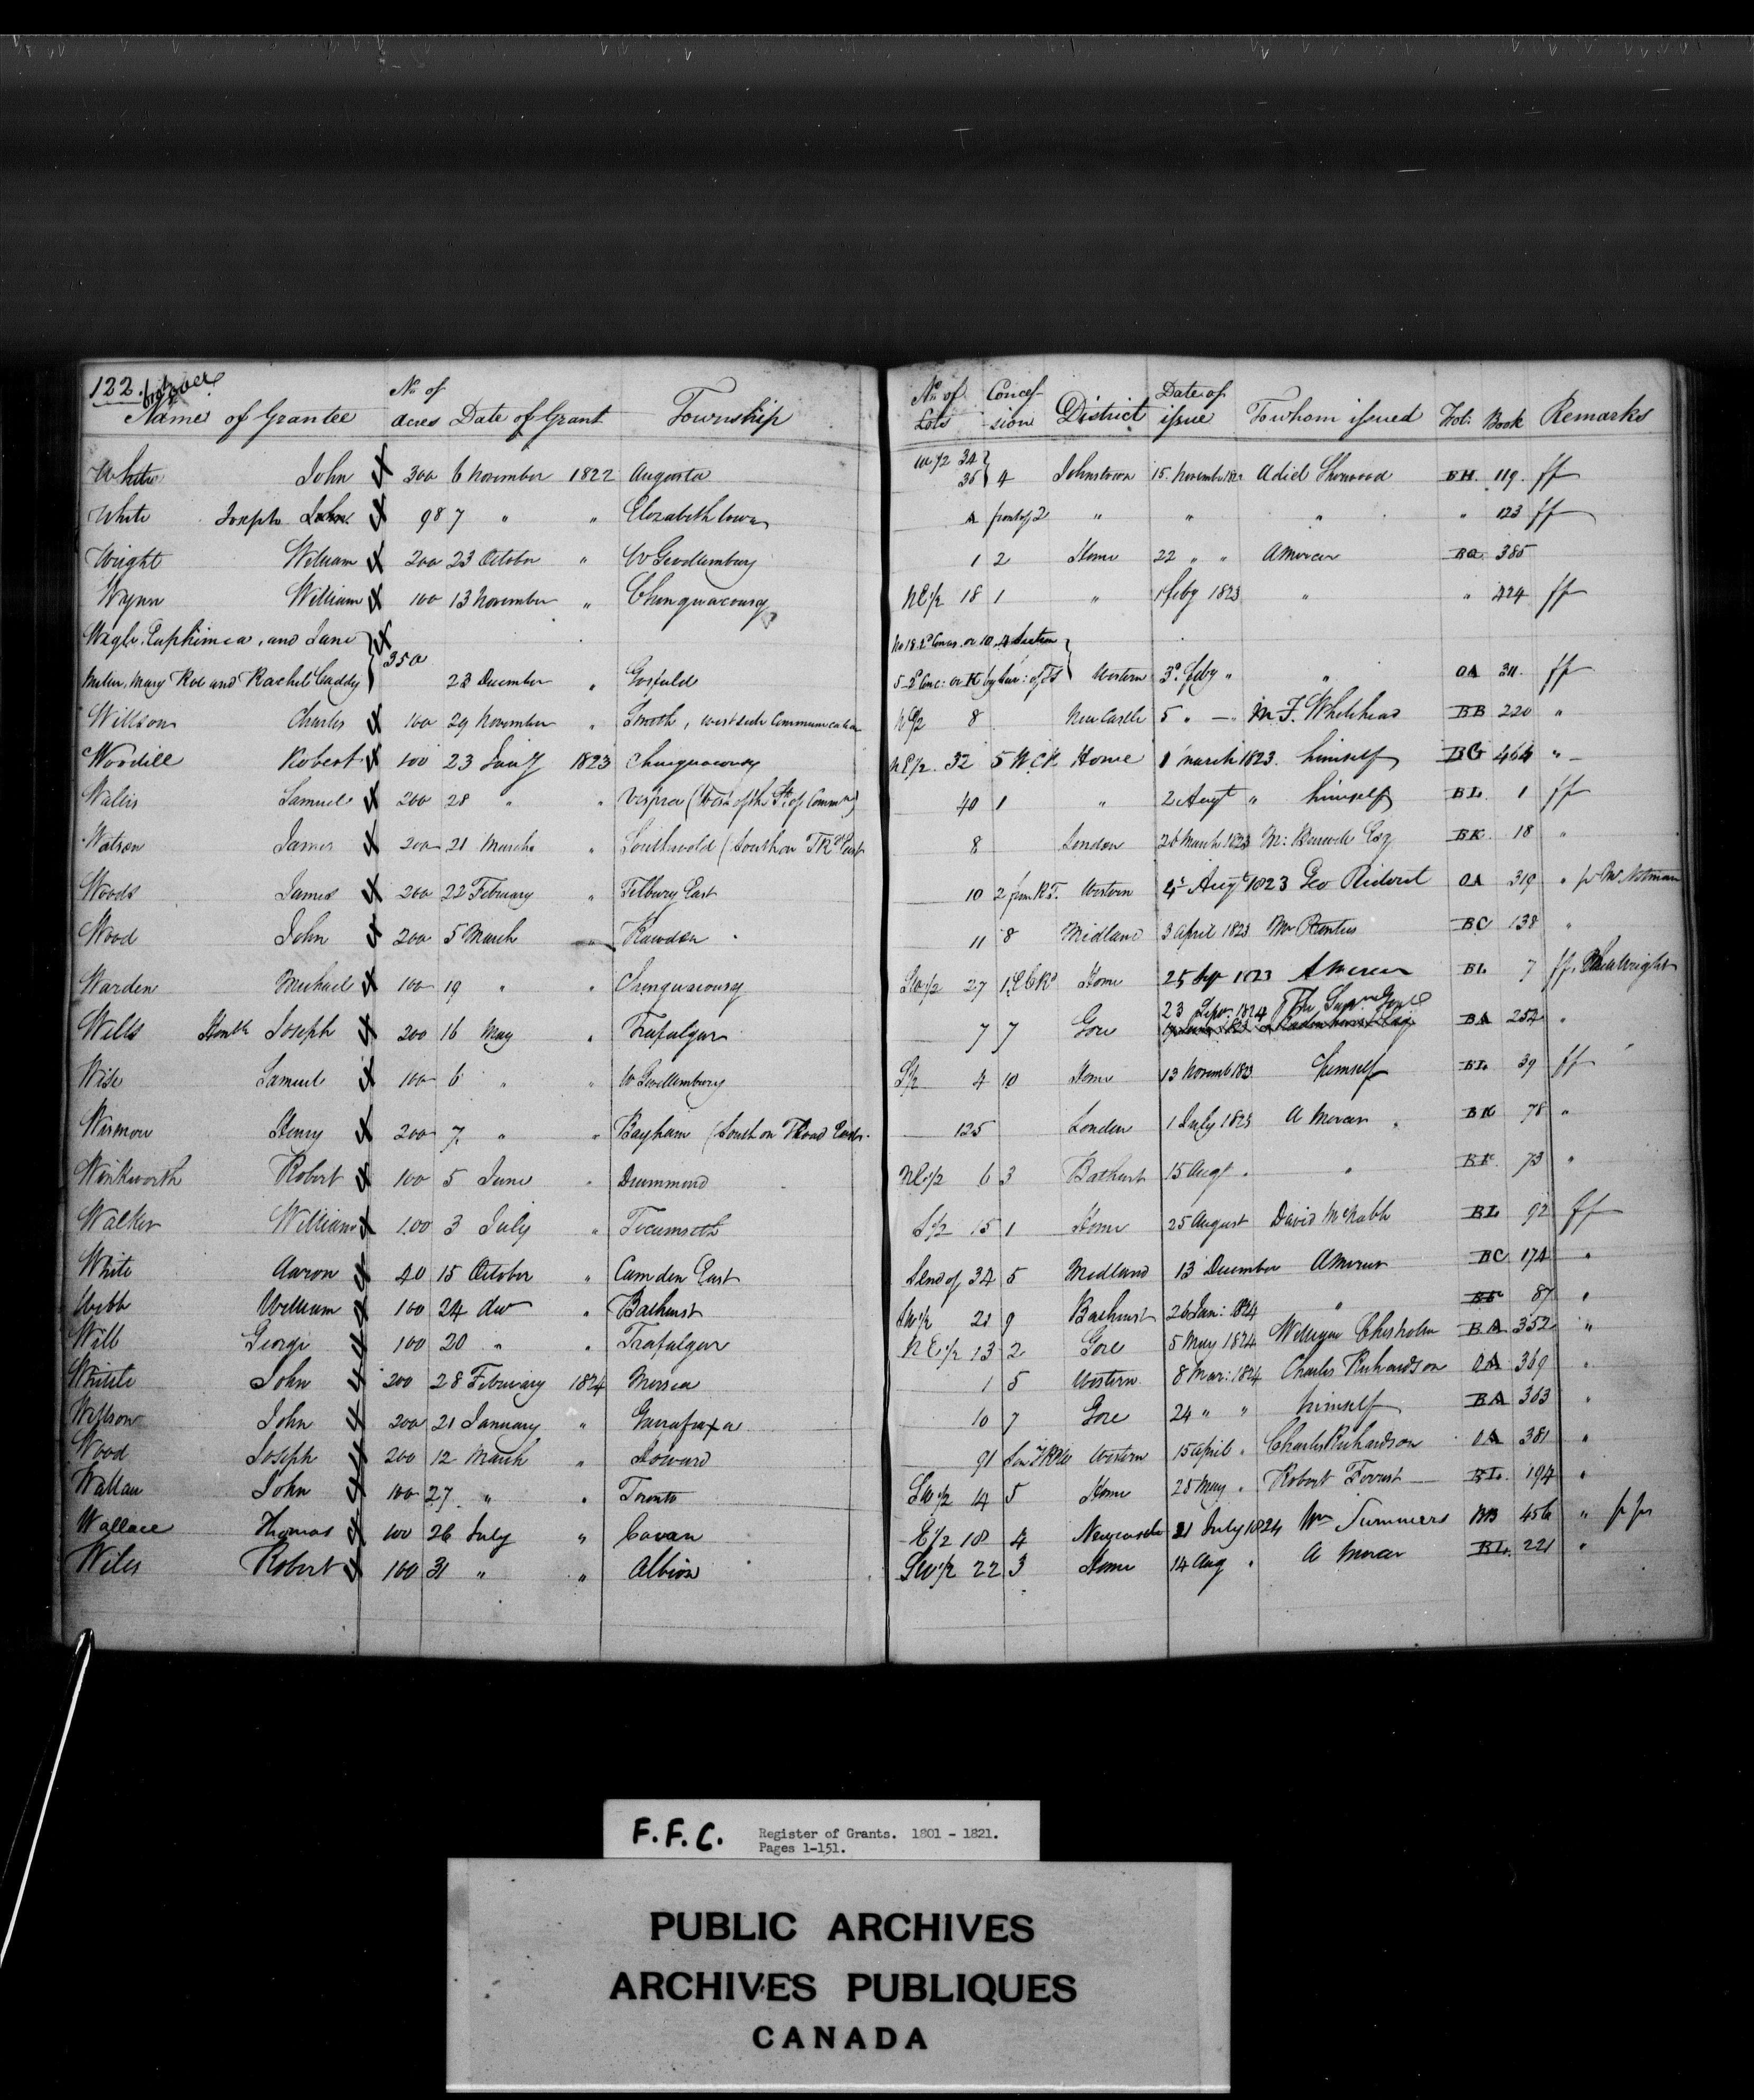 122. brot over
Name of Grantee No. of acres Date of Grant Township No. of Lots Concession District Date of issue To whom issued Fol: Book Remarks
White John 300 6 November 1822 Augusta W 1/2 34 35 4 Johnstown 15 November 182 Adiel Sherwood BH. 119. ff
White Joseph John 98 7 " " Elizabethtown A front of 2 " " " " 123 ff
Wright William 200 23 October " W Gwillimbury 1 2 Home 22 " " A Mercer BG 385
Wynn William 100 13 November " Chinguacousy NE 1/2 18 1 " 1 feby 1823 " " 424 ff
Wagle, Euphimia, and Jane
Miller, Mary Roe and Rachel Caddy 350 23 December " Gosfield Western 3d feby " " OA 311. ff
Willson Charles 100 29 November " Smith, west side Communication N 1/2 8 New Castle 5 " — " M. F. Whitehead BB 220 "
Woodill Robert 100 23 Jany 1823 Chinguacousy NE 1/2. 32 5 W.C.R. Home 1 march 1823. himself BG 464 "
Wallis Samuel 200 28 " " Vespra (West of the St. of Commn) 40 1 " 2 Augt " himself BL. 1 ff
Watson James 200 21 March " Southwold (South on TRd East 8 London 26 March 1823 M: Burwell Esq BK. 18 "
Woods James 200 22 February " Tilbury East 10 2 from R.T. Western 4 Augt 1823 Geo Ridout OA 319 " pr Mr Notman
Wood John 200 5 March " Rawdon 11 8 Midland 3 April 1823 Mr BC 138 "
Warden Michael 100 19 " " Chinguacousy SW 1/2 27 1 E C Rd Home 25 Sep 1823 A Mercer BL 7 ff. Wright
Wills Honble Joseph 200 16 May " Trafalgar 7 7 Gore 23 Sepr. 1824 The Survr Genl BA 254 "
Wise Samuel 100 6 " " W Gwillimbury S 1/2 4 10 Home 13 Novemb 1823 himself BL 39 ff
Wismore Henry 200 7. " " Bayham (South on TRoad East. 125 London 1 July 1823 A Mercer BK 78 "
Winkworth Robert 100 5 June " Drummond NE 1/2 6 3 Bathurst 15 Augt " " BF. 73 "
Walker William 100 3 July " Tecumseth S 1/2 15 1 Home 25 August David McNabb BL 92 ff
White Aaron 40 15 October " Camden East S end of 34 5 Midland 13 December A Mercer BC 174 "
Webb William 100 24 do " Bathurst SW 1/2 21 9 Bathurst 26 Jan: 1824 " BF 87 "
Will George 100 20 " " Trafalgar NE 1/2 13 2 Gore 5 May 1824 William Chisholm BA 352 "
John 200 28 February 1824 Mersea 1 5 Western 8 Mar: 1824 Charles Richardson OA 369 "
Willson John 200 21 January " Garrafraxa 10 7 Gore 24 " " himself BA 363 "
Wood Joseph 200 12 March " Howard 91 Western 15 April " Charles Richardson OA 381 "
Wallau John 100 27. " " Toronto SW 1/2 14 5 Home 25 May " Robert Forrest BL. 194 "
Wallace Thomas 100 26 July " Cavan E 1/2 10 4 Newcastle 21 July 1824 Wm Summers BB 456 "
Wiles Robert 100 31 " " Albion SW 1/2 22 3 Home 14 Aug " A Mercer BL. 221 "
F.F.C. Register of Grants. 1801 - 1821.
Pages 1-151.
PUBLIC ARCHIVES
ARCHIVES PUBLIQUES
CANADA